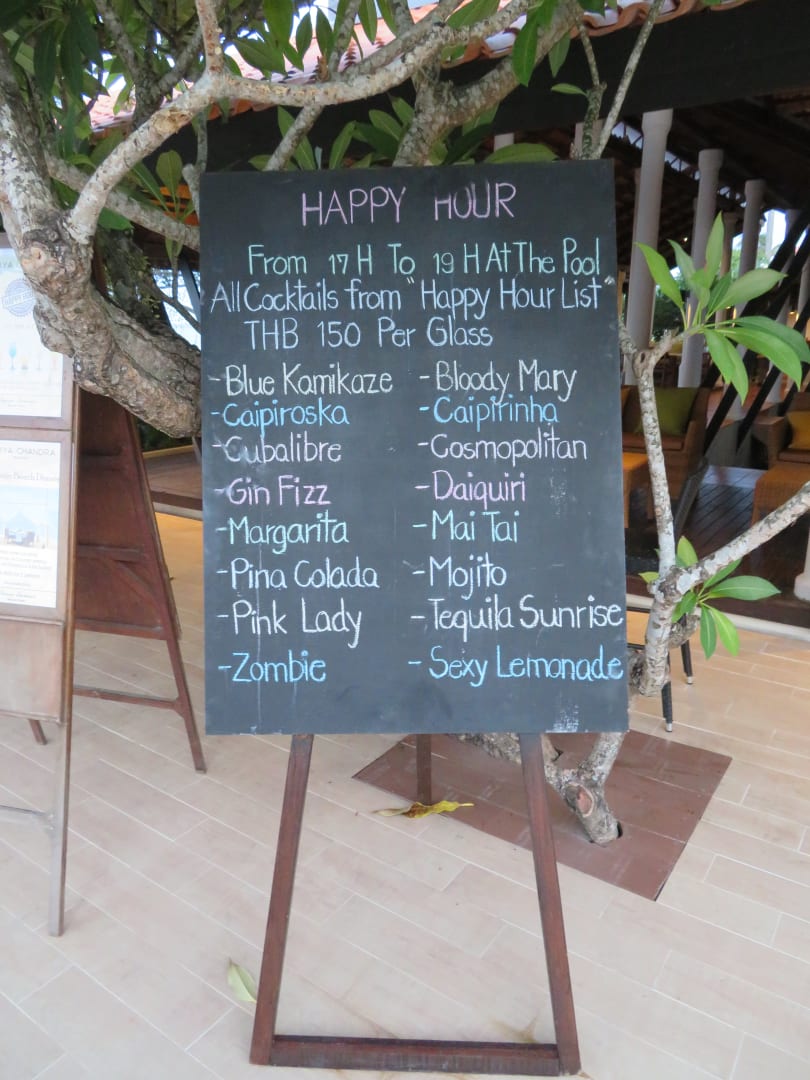 HAPPY HOUR
From 17 H To 19 H At The Pool
All Cocktails from "Happy Hour List"
THB 150 Per Glass
-Blue Kamikaze -Bloody Mary
-Caipiroska -Caipirinha
-Cubalibre -Cosmopolitan
-Gin Fizz -Daiquiri
-Margarita -Mai Tai
-Pina Colada -Mojito
-Pink Lady -Tequila Sunrise
-Zombie -Sexy Lemonade
CHANDRA